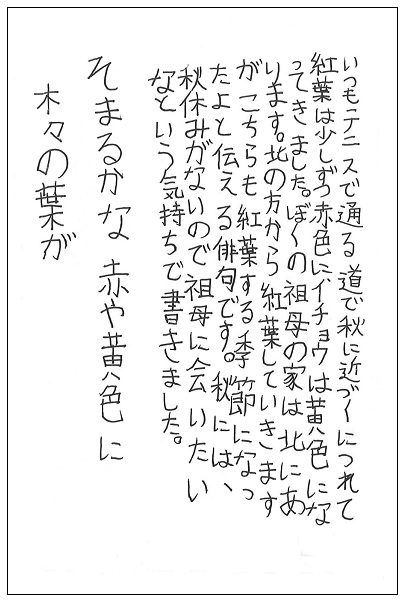 いつもテニスで通る道で秋に近づくにつれて
紅葉は少しずつ赤色にイチョウは黄色にな
ってきました。ぼくの祖母の家は北にあ
ります。北の方から紅葉していきます
がこちらも紅葉する季節になっ
たよと伝える俳句です。秋には、
秋休みがないので祖母に会いたい
なという気持ちで書きました。
そまるかな 赤や黄色に
木々の葉が